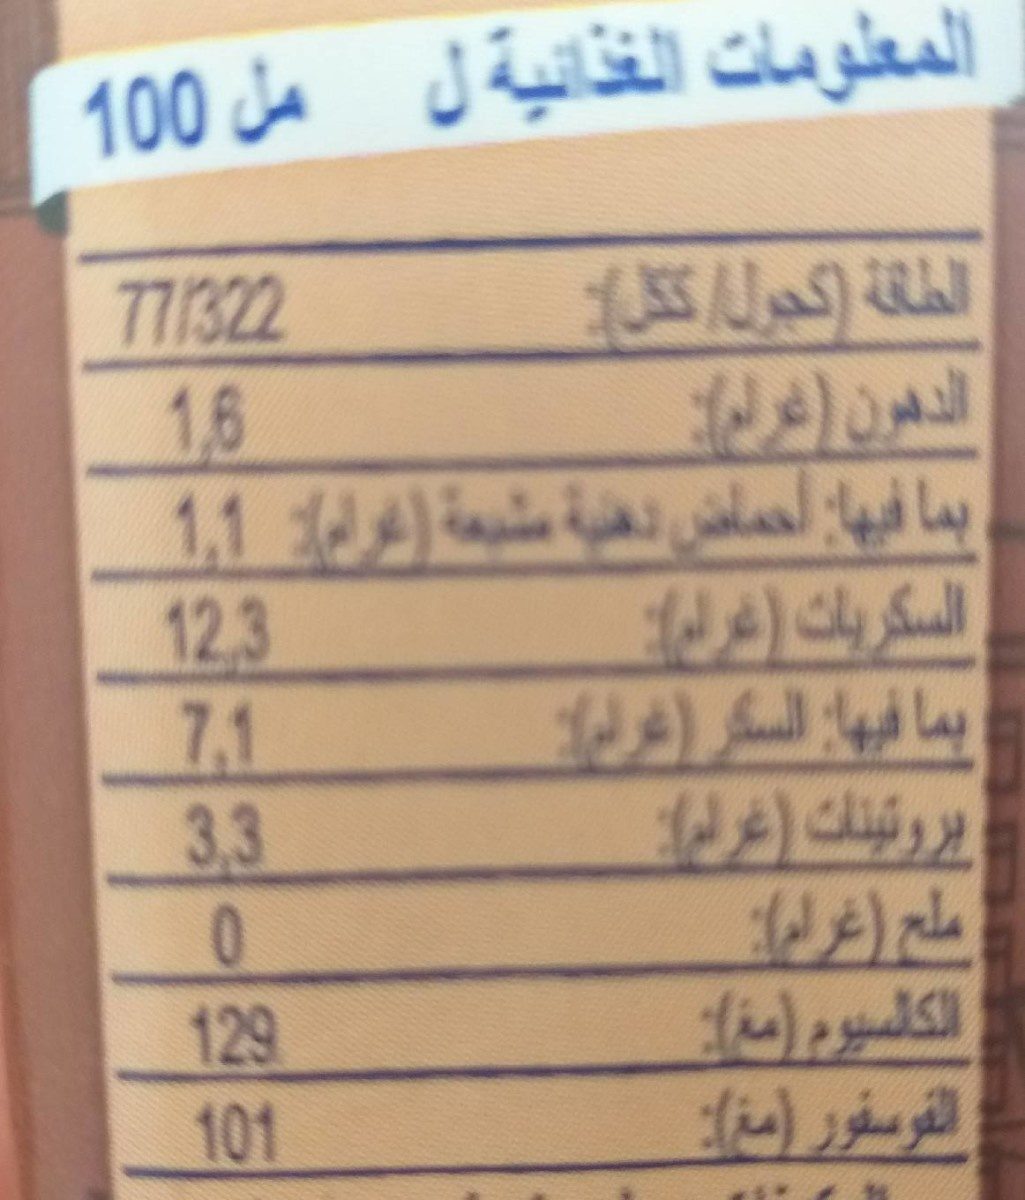 المعلومات الغذائية ل 100 مل
الطاقة (كجول/ ككل): 77/322
الدهون (غرام): 1,6
بما فيها: أحماض دهنية مشبعة (غرام): 1,1
السكريات (غرام): 12,3
بما فيها: السكر (غرام): 7,1
بروتينات (غرام): 3,3
ملح (غرام): 0
الكالسيوم (مغ): 129
الفوسفور (مغ): 101